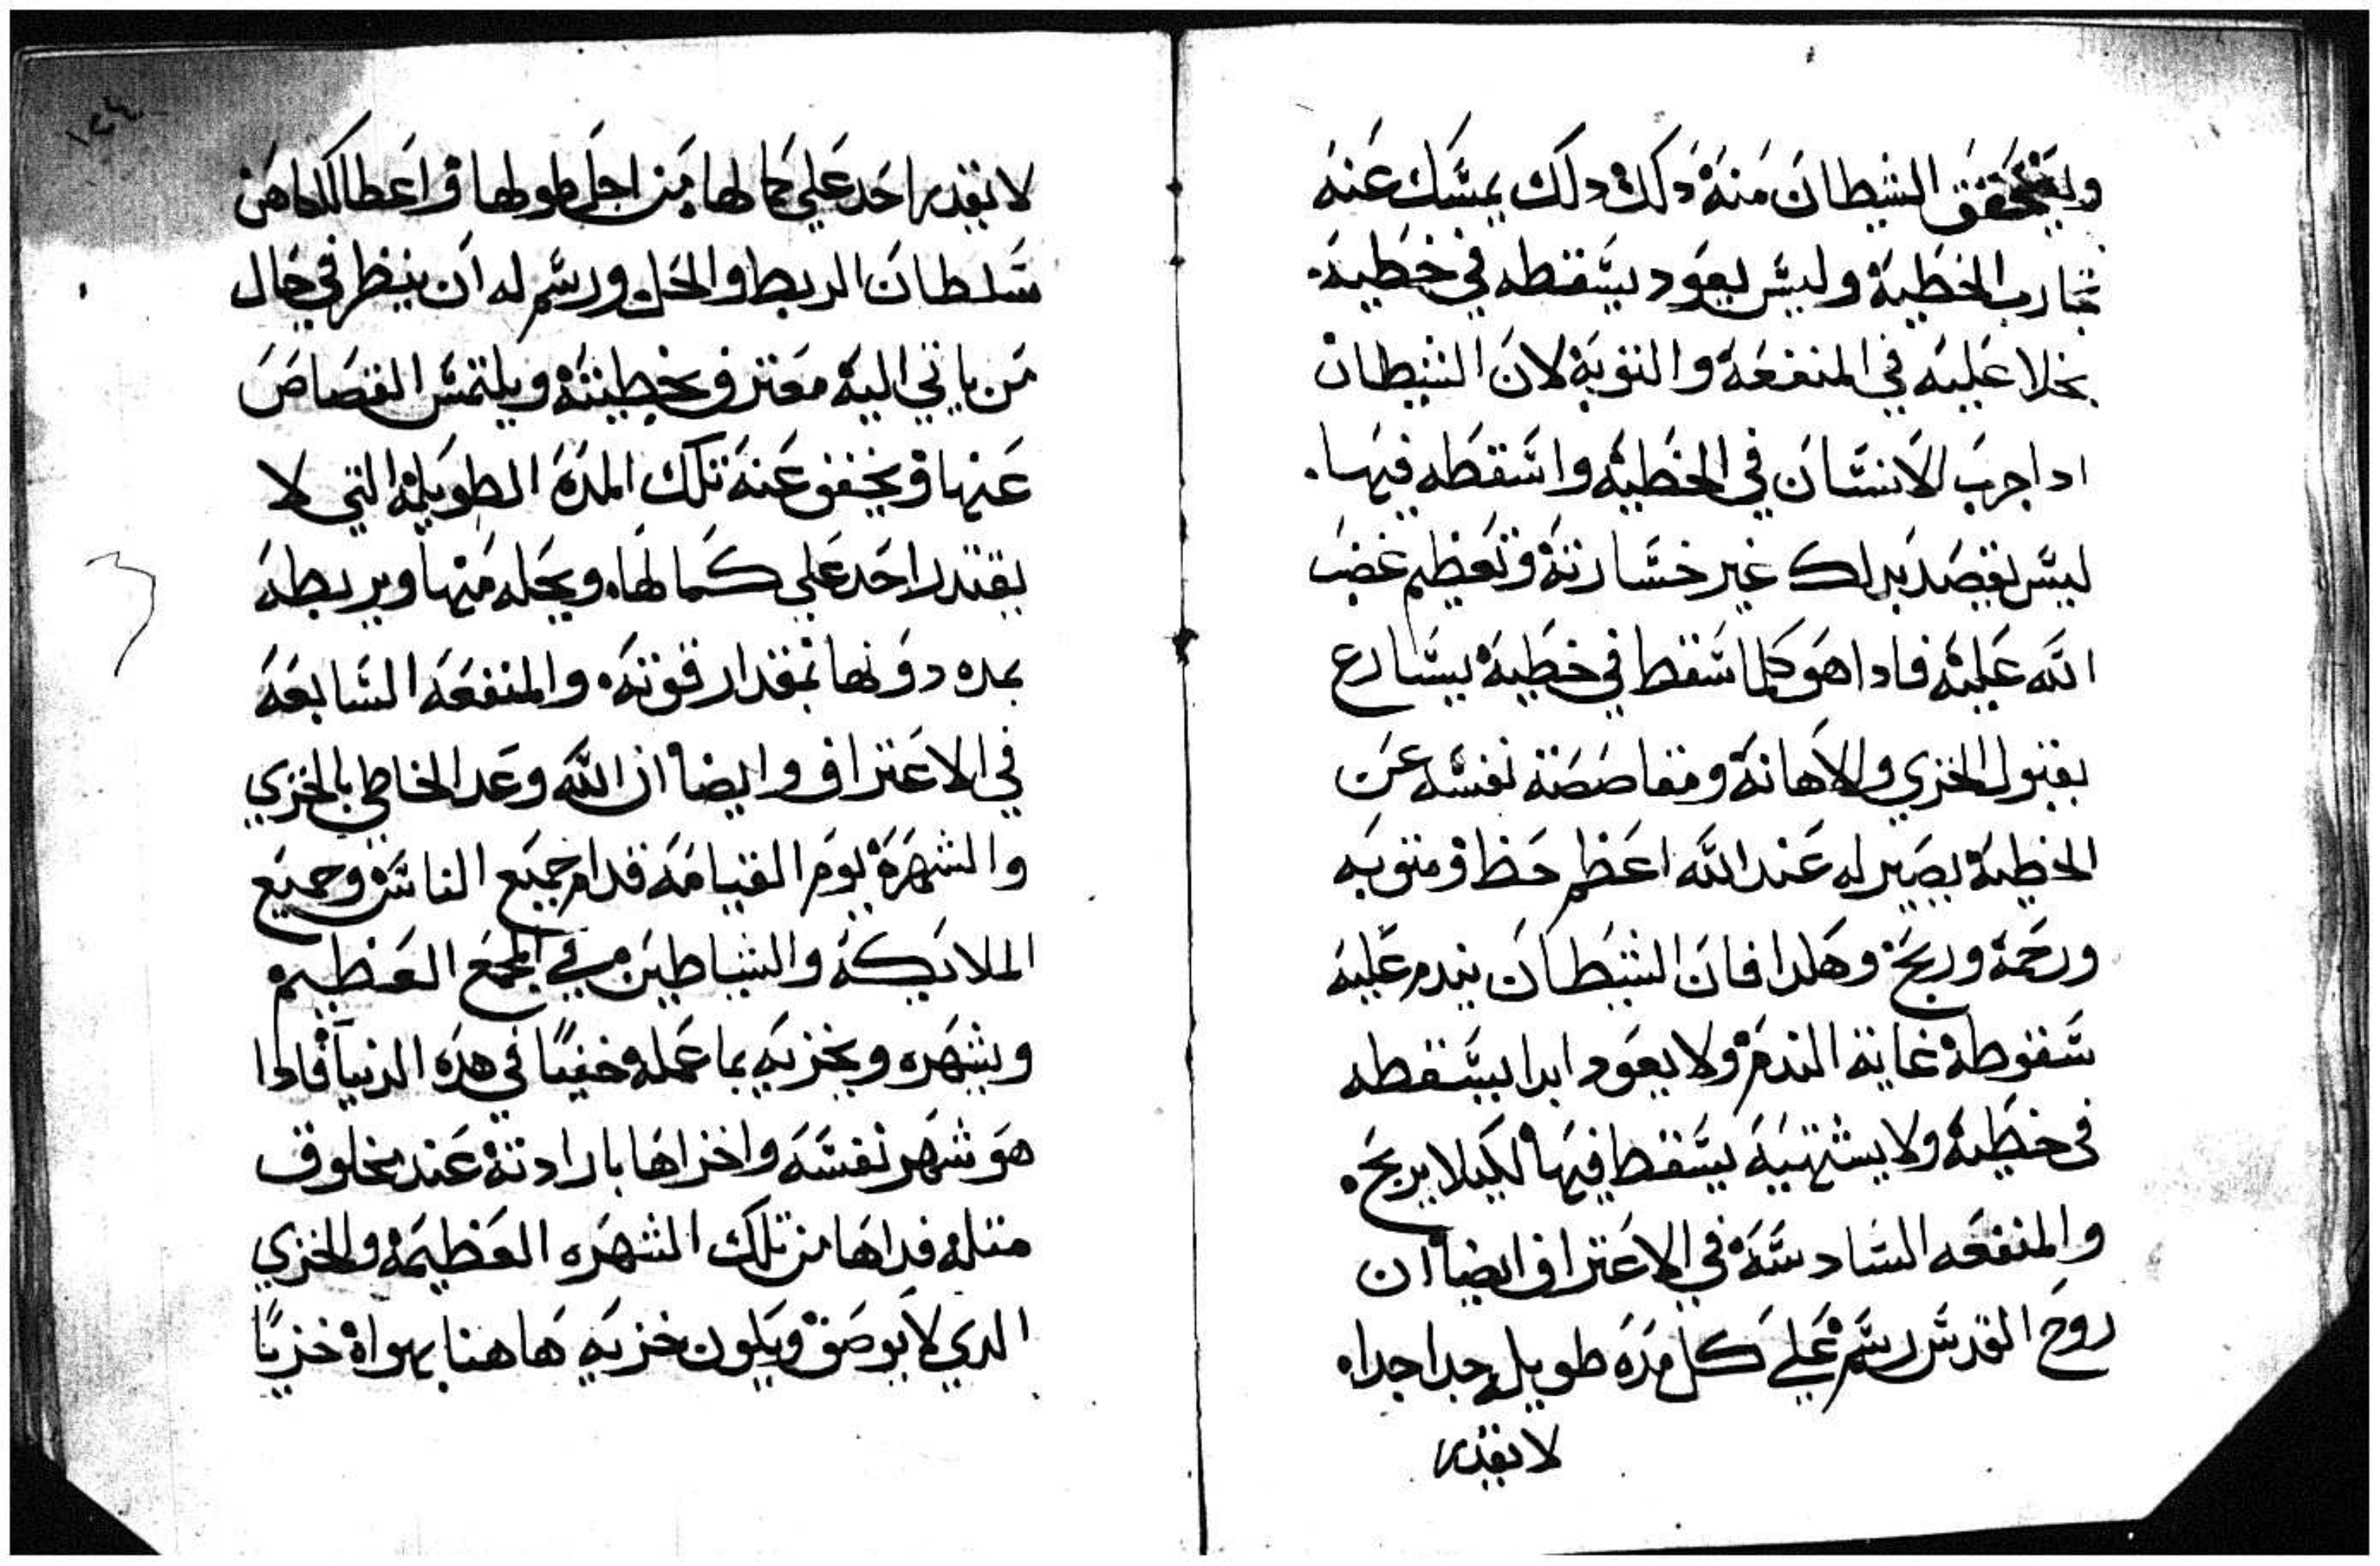 ويتحقق الشيطان منه دلك دلك يمسك عنه
تجارب الخطية وليس يعود يسقطه في خطية.
بخلا عليه في المنفعة والتوبة لان الشيطان
ادا جرب الانسان في الخطية واسقطه فيها.
ليس يقصد بدلك غير خسارته وتعظيم غضب
الله عليه فادا هو كلما سقط في خطية يسارع
بقبول الخزي والاهانة ومقاصصة نفسه عن
الخطية يصير له عند الله اعظم حظ ومتوبه
ورحمة وربح وهكدا فان الشيطان يندم عليه
سقوطه غاية الندم ولا يعود ابدا يسقطه
في خطية ولا يشتهيه يسقط فيها لكيلا يربح.
والمنفعه السادسة في الاعتراف ايضا ان
روح القدس رسم علي كل مده طويله جدا جدا.
لا يقدر
١٢٤
لا يقدر احد علي كمالها من اجل طولها واعطا الكاهن
سلطان الربط والحل ورسم له ان ينظر في حال
من ياتي اليه معترف بخطيته ويلتمس القصاص
عنها ويخفف عنه تلك المدة الطويلة التي لا
يقتدر احد علي كمالها. ويحله منها ويربطه
بمده دونها بمقدار قوته. والمنفعه السابعه
في الاعتراف وايضا ان الله وعد الخاطي بالخزي
والشهرة يوم القيامه قدام جميع الناس وجميع
الملايكة والشياطين في المجمع العظيم
ويشهره ويخزيه بما عمله خفيا في هده الدنيا فادا
هو شهر نفسه واخزاها بارادته عند مخلوق
متله فداها من تلك الشهره العظيمه والخزي
الدي لا يوصف ويكون خزيه هاهنا بهواه خزيا